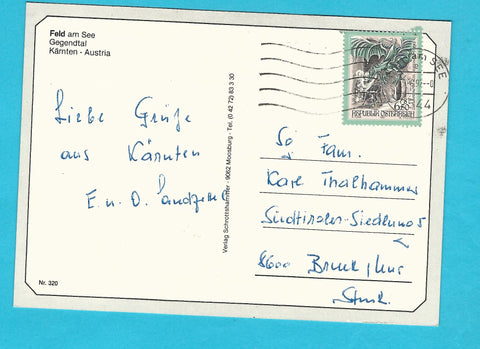 Feld am See
Gegendtal
Kärnten - Austria
Liebe Grüße
aus Kärnten
E. u. O.
Verlag Schrottshammer - 9062 Moosburg - Tel. (0 42 72) 83 3 30
REPUBLIK ÖSTERREICH
SEE
Fam.
Karl Thalhammer
Südtiroler-Siedlung 5
8600 Bruck/Mur
Stmk.
Nr. 320